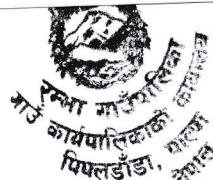 रम्भा गाउँपालिका
गाउँ कार्यपालिकाको कार्यालय
पिपलडाँडा, पाल्पा
नेपाल